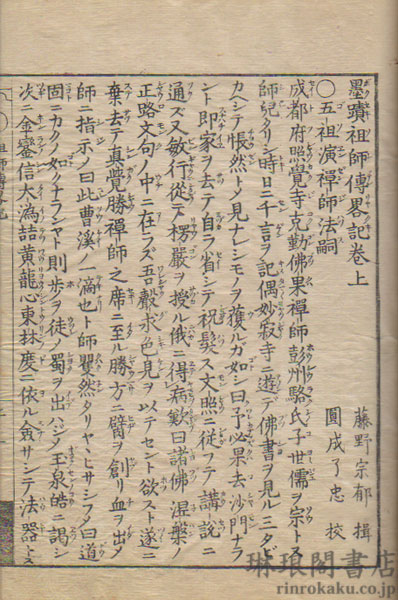 墨蹟祖師傳畧記卷上
藤野宗郁 揖
圓成了忠 校
○五祖演禪師法嗣
成都府照覺寺克勤佛果禪師彭州駱氏子世儒ヲ宗トス
師兒タリシ時日ニ千言ヲ記偶妙寂寺ニ遊デ佛書ヲ見ル三タビ
カヘシテ悵然トノ見ナレシモノヲ獲ルガ如シ曰予必果去ノ沙門ナラ
ント即家ヲ去テ自ラ省シテ祝髮ス文照ニ従フテ講說ニ
通ズ又敏行ニ從テ楞嚴ヲ授ル俄ニ得病歎曰諸佛涅槃ノ
正路文句ノ中ニ在ラズ吾聲求色見ヲ以テセント欲スト遂ニ
棄去テ真覺勝禪師之席ニ至ル勝方ニ臂ヲ創リ血ヲ出メ
師ニ指示ノ曰此曹溪ノ一滴也ト師矍然タリヤヽヒサシフメ曰道
固ニカクノ如クナランヤト則歩ヲ徒ノ蜀ヲ出ハジメ玉泉皓ニ謁シ
次ニ金鑾信大溈喆黄龍心東林度ニ依ル僉サシテ法器トス
琳琅閣書店
rinrokaku.co.jp